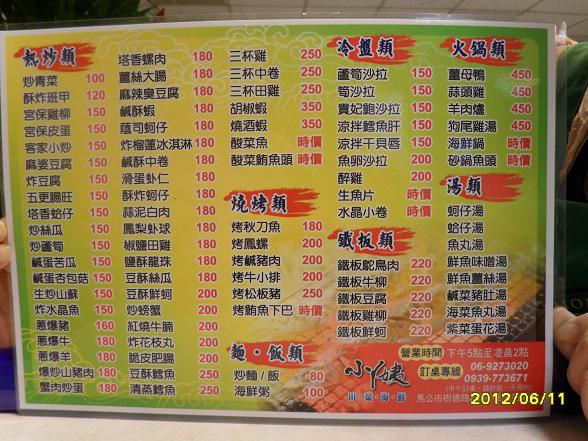 熱炒類
炒青菜 100
酥炸班甲 120
宮保雞柳 150
宮保皮蛋 150
客家小炒 150
麻婆豆腐 150
炸豆腐 150
五更腸旺 150
塔香蛤仔 150
炒絲瓜 150
炒蘆筍 150
鹹蛋苦瓜 150
鹹蛋杏包菇 150
生炒山蘇 150
炸水晶魚 150
蔥爆豬 160
蔥爆牛 180
蔥爆羊 180
爆炒山豬肉 180
蟹肉炒蛋 180
塔香螺肉 180
薑絲大腸 180
麻辣臭豆腐 180
鹹酥蝦 180
蔭司蚵仔 180
炸榴蓮冰淇淋 180
鹹酥中卷 180
滑蛋蝦仁 180
酥炸蚵仔 180
蒜泥白肉 180
鳳梨蝦球 180
椒鹽田雞 180
鹽酥龍珠 180
豆酥絲瓜 180
豆酥鮮蚵 200
炒螃蟹 200
紅燒牛腩 200
炸花枝丸 200
脆皮肥腸 200
豆酥鱈魚 250
清蒸鱈魚 250
三杯雞 250
三杯中卷 250
三杯田雞 250
胡椒蝦 350
燒酒蝦 350
酸菜魚 時價
酸菜鮪魚頭 時價
燒烤類
烤秋刀魚 180
烤鳳螺 200
烤鹹豬肉 200
烤牛小排 200
烤松板豬 250
烤鮪魚下巴 時價
麵・飯類
炒麵/飯 80
海鮮粥 100
冷盤類
蘆筍沙拉 150
筍沙拉 150
貴妃鮑沙拉 150
涼拌鱈魚肝 150
涼拌干貝唇 150
魚卵沙拉 200
醉雞 200
生魚片 時價
水晶小卷 時價
鐵板類
鐵板鴕鳥肉 220
鐵板牛柳 220
鐵板豆腐 220
鐵板雞柳 220
鐵板鮮蚵 220
火鍋類
薑母鴨 450
蒜頭雞 450
羊肉爐 450
狗尾雞湯 450
海鮮鍋 時價
砂鍋魚頭 時價
湯類
蚵仔湯
蛤仔湯
魚丸湯
鮮魚味噌湯
鮮魚薑絲湯
鹹菜豬肚湯
海菜魚丸湯
紫菜蛋花湯
小ㄚ婕
川・菜・海・鮮
營業時間 下午5點至凌晨2點
訂桌專線 06-9273020
0939-773671
馬公市樹德路
2012/06/11